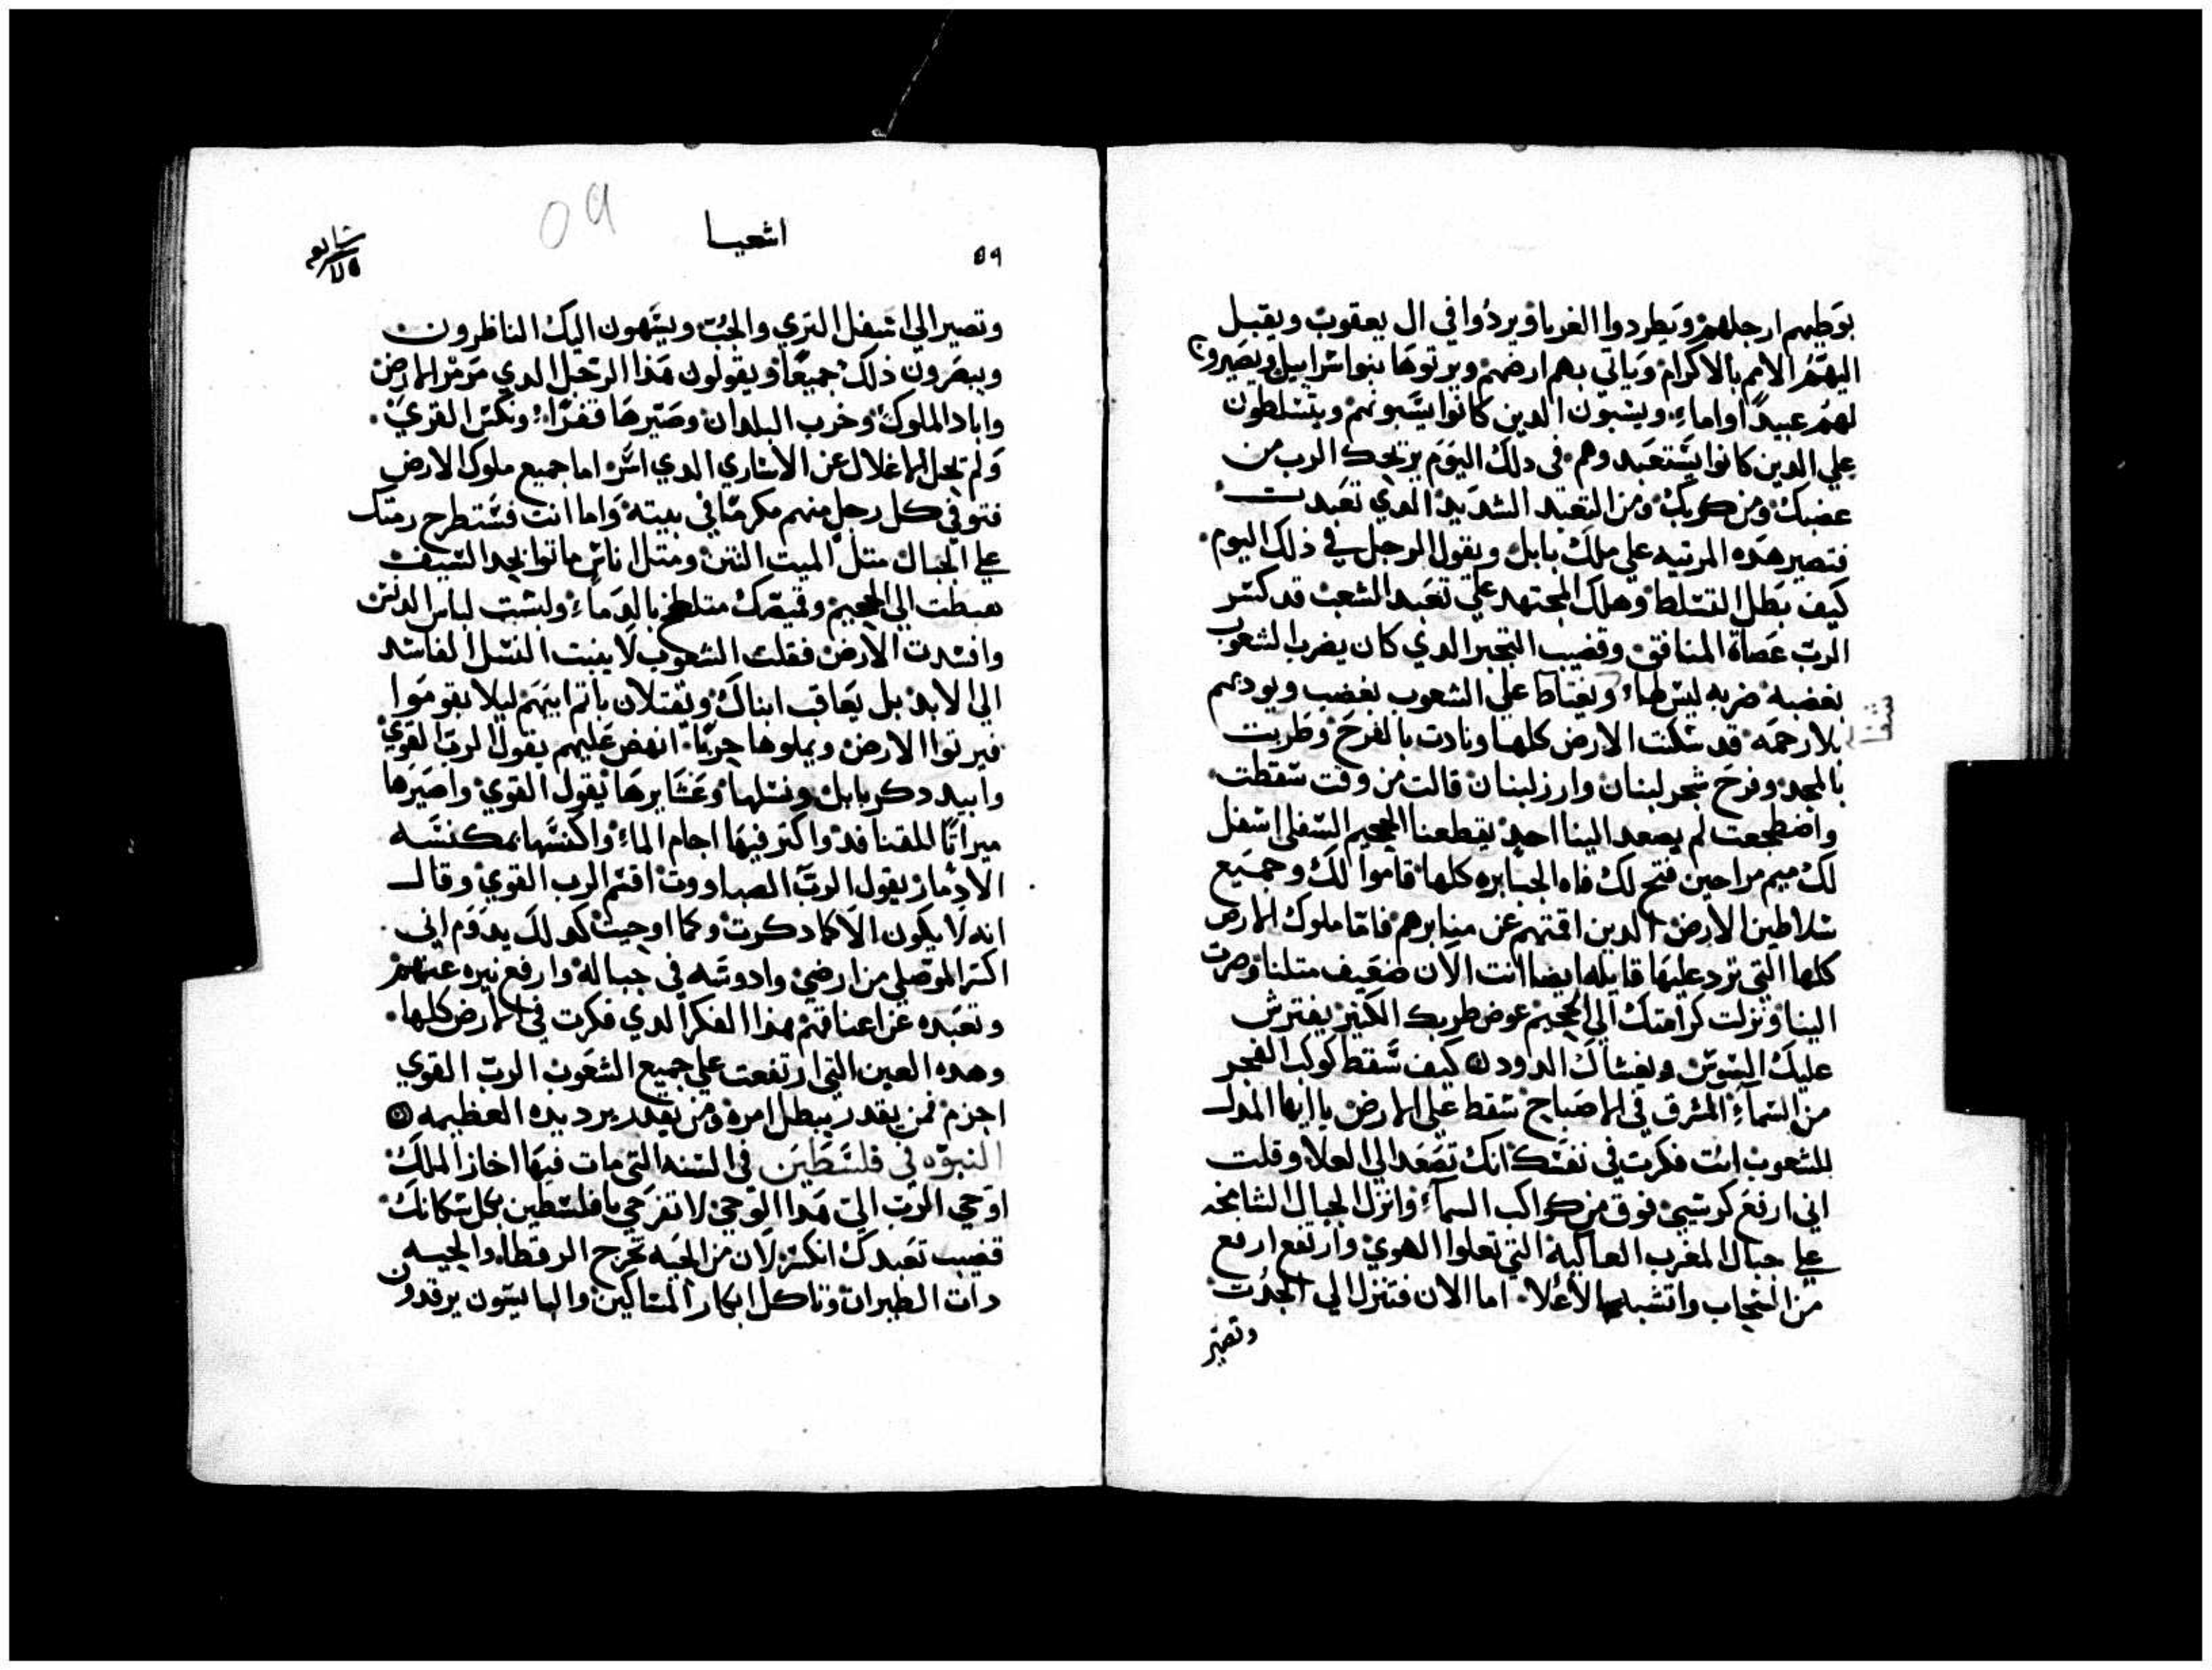 بوطيهم ارجلهم ويطردوا الغربا ويردوا في ال يعقوب ويقبل
اليهم الامم بالاكرام وياتي بهم ارضهم ويرتوها بنو اسراييل ويصيرون
لهم عبيدًا واماءِ ويسبون الدين كانوا يسبونهم ويتسلطون
علي الدين كانوا يستعبدوهم في دلك اليوم يريحك الرب من
غضبك ومن كربك ومن التعبد الشديد الدي تعبدت
فتصير هده المرتيه علي ملك بابل ويقول الرجل في ذلك اليوم
كيف بطل التسلط وهلك المجتهد علي تعبد الشعب قد كسر
الرب عصاة المنافق وقضيب التجبر الدي كان يضرب الشعوب
بغضبه ضربه ليس لها ويغتاظ علي الشعوب بغضب ويودبهم
بلا رحمه قد سكنت الارض كلها ونادت بالفرح وطربت
بالمجد وفرح شجر لبنان وارز لبنان قالت من وقت سقطت
واضطجعت لم يصعد الينا احد يقطعنا الجحيم السفلي اسفل
لك مراحين فتح لك فاه الجبابره كلها قاموا لك وجميع
سلاطين الارض الدين اقمتهم عن منابرهم فاما ملوك الارض
كلها التي ترد عليها قايله ايضا انت الان ضعيف متلنا وصرت
الينا ونزلت كرامتك الي الجحيم عوض طربك الكتير يفترش
عليك السوس ويغشاك الدود كيف سقط كوكب الفجر
من السماءِ المشرق في الاصباح سقط علي الارض يا ايها المدل
للشعوب انت فكرت في نفسك انك تصعد الي العلا وقلت
اني ارفع كرسيي فوق من كواكب السماءِ وانزل الجبال الشامخه
علي جبال المغرب العاليه التي تعلوا الهوي وارتفع ارفع
من السحاب واتشبه بالاعلا اما الان فتنزل الي الجدت
وتصير
اشعيا
٥٩
وتصير الي اسفل التري والجب ويشهون اليك الناظرون
ويبصرون ذلك جميعًا ويقولون هذا الرجل الدي مرمر الارض
واباد الملوك وخرب البلدان وصيرها قفرًا ونكس القري
ولم يحل الاغلال عن الاساري الدي اسر اما جميع ملوك الارض
فتوفي كل رجل منهم مكرمًا في بيته واما انت فستطرح رمتك
علي الجبال متل الميت النتن ومتل اناس ماتوا بحد السيف
هبطت الي الجحيم وقميصك متلطخ بالدماءِ ولبست لباس الدنس
وافسدت الارض فقلت الشعوب لا ينبت النسل الفاسد
الي الابد بل يعاقب ابناك ويقتلان باتم ابيهم ليلا يقوموا
فيرتوا الارض ويملوها حربًا انهض عليهم يقول الرب القوي
وابيد دكر بابل ونسلها وعشايرها يقول القوي واصيرها
ميراتًا للقنافد واكتر فيها اجام الماءِ واكنسها بمكنسه
يقول الرب الصباووت اقسم الرب القوي وقال
انه لا يكون الا كما دكرت وكما اوحيت كدلك يدوم اني
اكسر الموصلي من ارضي وادوسه في جباله وارفع نيره عنهم
وتعبده عن اعناقهم هذا الفكر الدي فكرت في الارض كلها
وهده العين التي ارتفعت علي جميع الشعوب الرب القوي
اجزم فمن يقدر يبطل امره ومن يقدر يرد يده العظيمه
النبوه في فلسطين في السنه التي مات فيها احاز الملك
اوحي الرب الي هدا الوحي لا تفرحي يا فلسطين بكل سكانك
قضيب تعبدك انكسر لان من الحيه تخرج الرقطاء والحيه
دات الطيران وتاكل ابكار المساكين والبايسون يرقدون